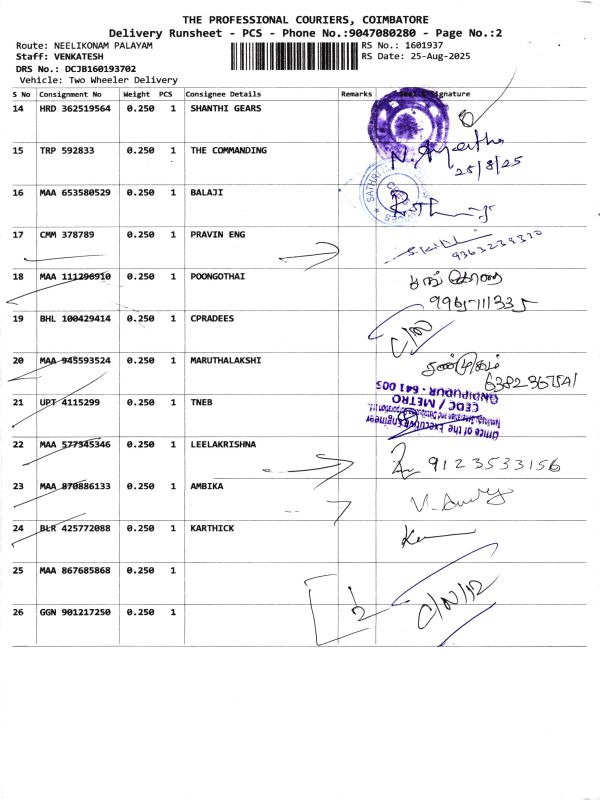 THE PROFESSIONAL COURIERS, COIMBATORE
Delivery Runsheet - PCS - Phone No.:9047080280 - Page No.:2
Route: NEELIKONAM PALAYAM RS No.: 1601937
Staff: VENKATESH RS Date: 25-Aug-2025
DRS No.: DCJB160193702
Vehicle: Two Wheeler Delivery
S No Consignment No Weight PCS Consignee Details Remarks Signature
14 HRD 362519564 0.250 1 SHANTHI GEARS
15 TRP 592833 0.250 1 THE COMMANDING
25/8/25
16 MAA 653580529 0.250 1 BALAJI
17 CMM 378789 0.250 1 PRAVIN ENG
9363239370
18 MAA 111296910 0.250 1 POONGOTHAI பூங்கோதை
19 BHL 100429414 0.250 1 CPRADEES
20 MAA 945593524 0.250 1 MARUTHALAKSHI
21 UPT 4115299 0.250 1 TNEB
ONDIPUDUR - 641 003
CEDC / METRO
Office of the Executive Engineer
22 MAA 577345346 0.250 1 LEELAKRISHNA 9123533156
23 MAA 870886133 0.250 1 AMBIKA
24 BLR 425772088 0.250 1 KARTHICK
25 MAA 867685868 0.250 1
26 GGN 901217250 0.250 1